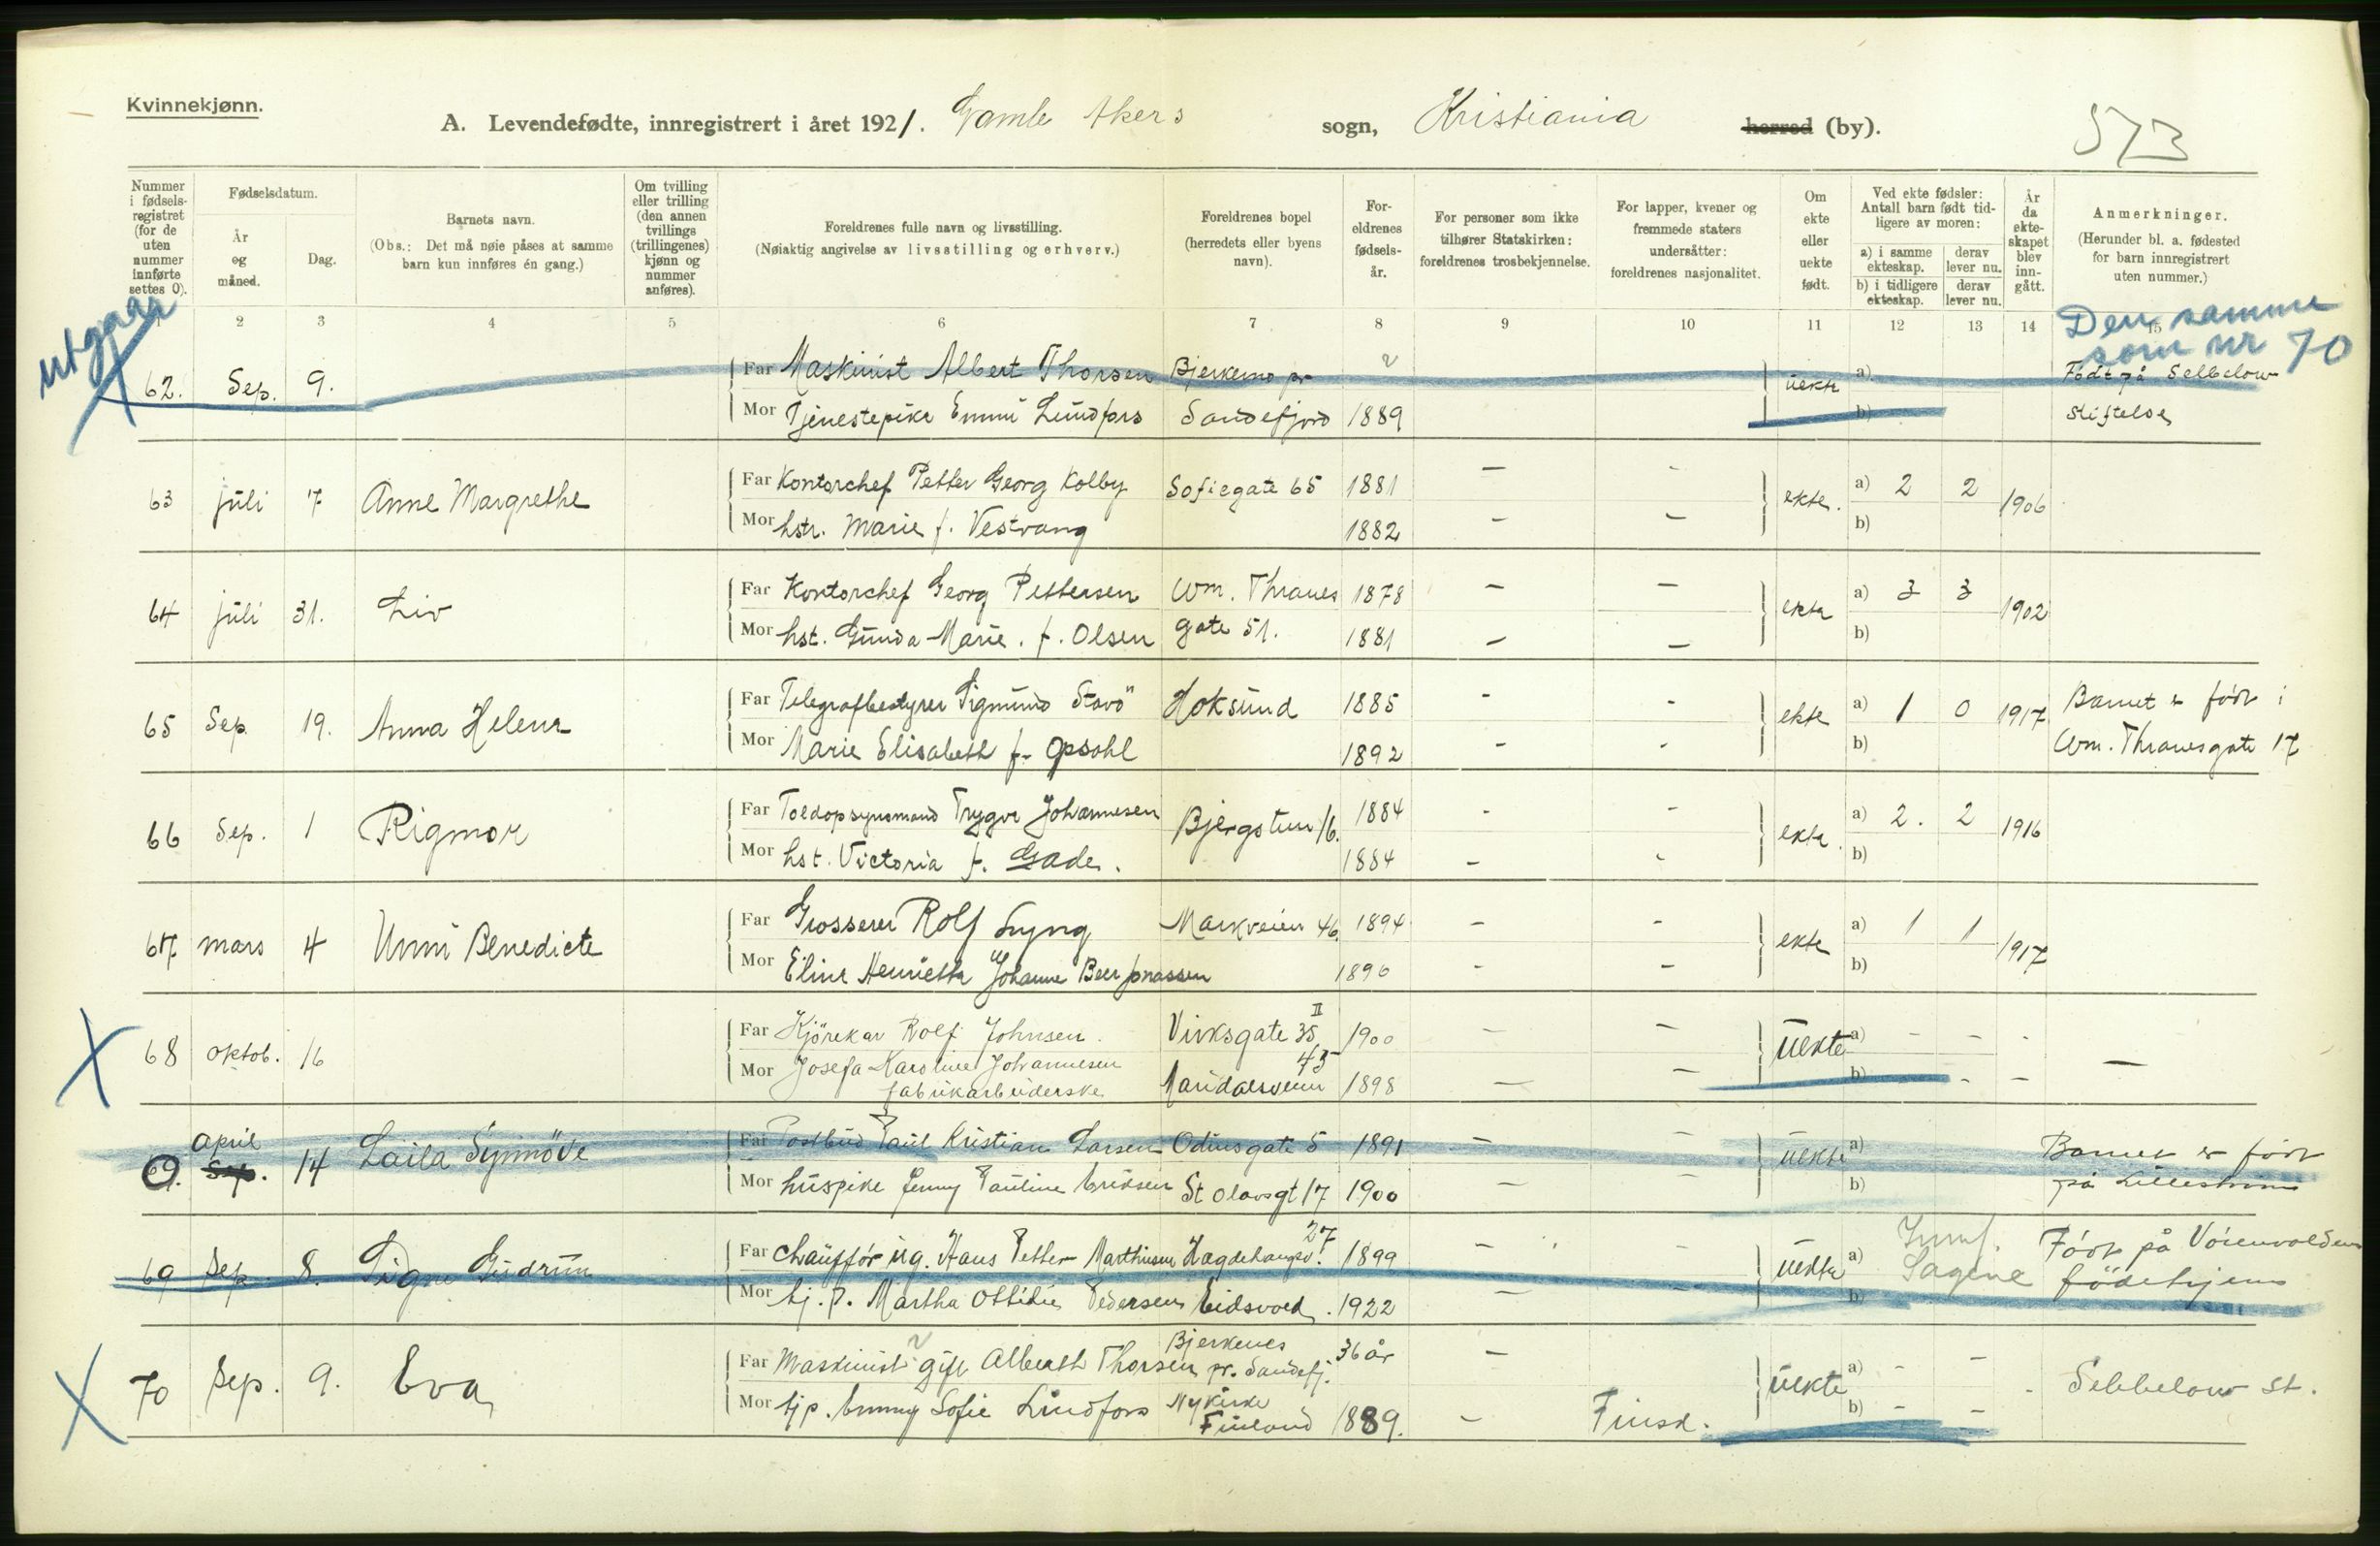 Kvinnekjønn.
A. Levendefødte, innregistrert i året 1921. Gamle Akers sogn, Kristiania herred (by).
573
Nummer i fødsels-registret (for de uten nummer innførte settes 0).
Fødselsdatum.
År og måned.
Dag.
Barnets navn.
(Obs.: Det må nøie påses at samme barn kun innføres én gang.)
Om tvilling eller trilling (den annen tvillings (trillingenes) kjønn og nummer anføres).
Foreldrenes fulle navn og livsstilling.
(Nøiaktig angivelse av livsstilling og erhverv.)
Foreldrenes bopel (herredets eller byens navn).
For-eldrenes fødsels-år.
For personer som ikke tilhører Statskirken: foreldrenes trosbekjennelse.
For lapper, kvener og fremmede staters undersåtter: foreldrenes nasjonalitet.
Om ekte eller uekte født.
Ved ekte fødsler: Antall barn født tid-ligere av moren:
a) i samme ekteskap.
derav lever nu.
b) i tidligere ekteskap.
derav lever nu.
År da ekte-skapet blev inn-gått.
Anmerkninger.
(Herunder bl. a. fødested for barn innregistrert uten nummer.)
2 3 4 5 6 7 8 9 10 11 12 13 14 15
utgaar
Den samme som nr 70
62. Sep. 9. Far Maskinist Albert Thorsen Bjerkenes pr uekte a) Födt på Sebbelow
Mor Tjenestepike Emmi Lundfors Sandefjord 1889 b) stiftelse
63 juli 7 Anne Margrethe Far Kontorchef Petter Georg Kolby Sofiegate 65 1881 — - ekte. a) 2 2 1906
Mor hstr. Marie f. Vestvang 1882 — — b)
64 juli 31. Liv Far Kontorchef Georg Pettersen Wm. Thranes 1878 — — ekte a) 3 3 1902
Mor hst. Gunda Marie. f. Olsen gate 51. 1881 — — b)
65 Sep. 19. Anna Helene Far Telegrafbestyrer Sigmund Stavö Hoksund 1885 - - ekte a) 1 0 1917 Barnet er født i
Mor Marie Elisabeth f. Opsahl 1892 - - b) Wm. Thranesgate 17
66 Sep. 1 Rigmor Far Toldopsynsmand Trygve Johannesen Bjergstien 16. 1884 - - ekte a) 2. 2 1916
Mor hst. Victoria f. Gade. 1884 - - b)
67 mars 4 Unni Benedicte Far Grosserer Rolf Lyng Markveien 46. 1894 - - ekte a) 1 1 1917
Mor Eline Henriette Johanne Beer Jonassen 1896 - - b)
68 oktob. 16 Far Kjörekar Rolf Johnsen. Virksgate 35 II 1900 — — uekte a) - - -
Mor Josefa Karoline Johannesen fabrikarbeiderske Maridalsveien 45 1898 — — b) - - —
69. Sep. april 14 Laila Synnöve Far Postbud Paul Kristian Larsen Odinsgate 5 1891 — — uekte a) Barnet er født
Mor huspike Jenny Pauline Eriksen St Olavsgt 17 1900 — — b) på Lilleström
69 Sep. 8. Signe Gudrun Far Chauffør ug. Hans Petter Marthinsen Hegdehaugsv. 27 1899 — — uekte a) Født på Vöienvolden
Mor tj. p. Martha Ottilie Pedersen Eidsvold. 1922 — — b) fødehjem
Sagene
70 Sep. 9. Eva Far Maskinist gift Alberth Thorsen Bjerkenes pr. Sandefj. 36 år — uekte a) - — Sebbelow st.
Mor tjp. Emmy Sofie Lindfors Nykirke Finland 1889. - Finsk. b) - -